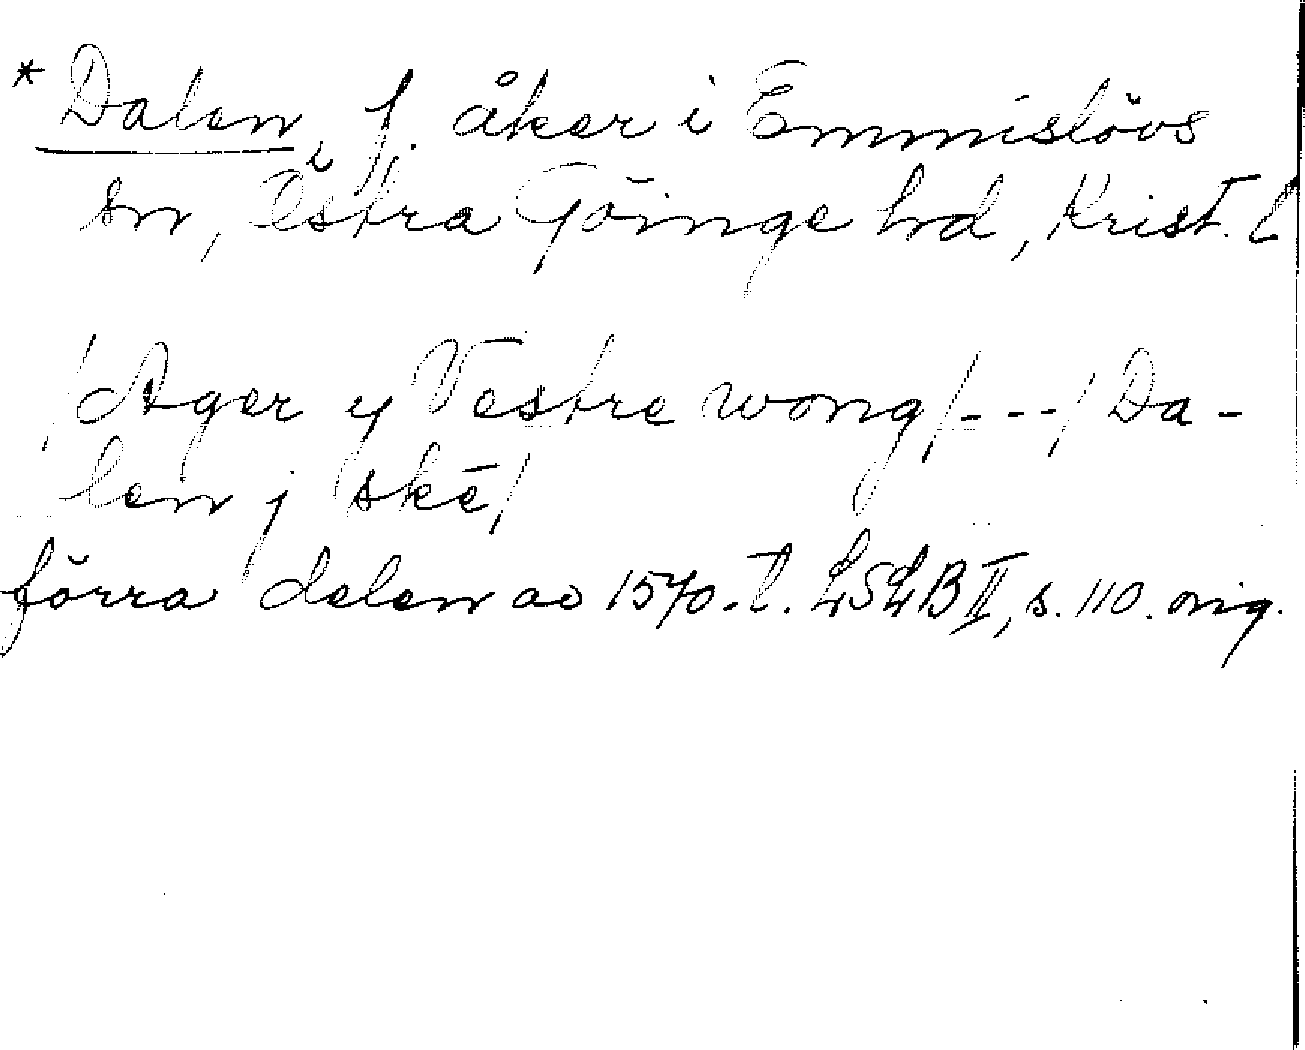 *Dalen, f. åker i Emmislövs
sn, Östra Göinge hd, Krist. l
/Ager y Vestre wong/---/Da-
len j ske/
förra delen av 1570-t. LSLB II, s. 110. orig.